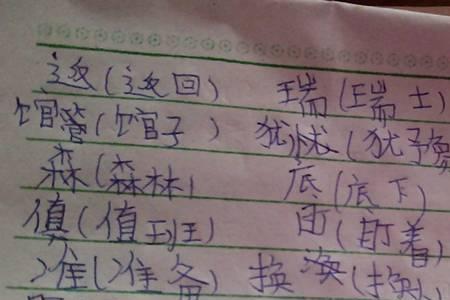 返(返回) 瑞(瑞士)
馆(馆子) 犹(犹豫
森(森林) 底(底下)
值(值班) 盯(盯着)
准(准备) 换(换